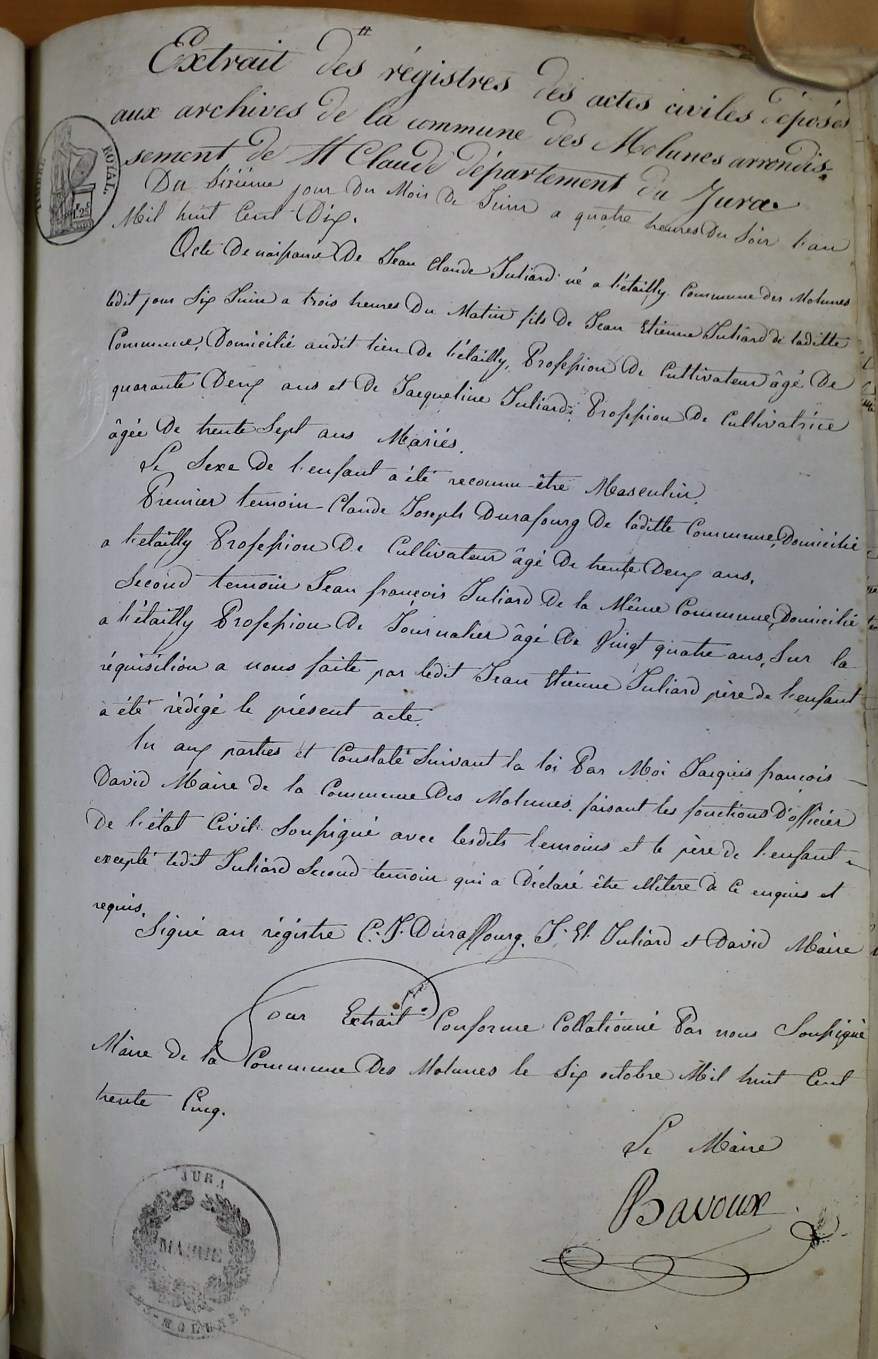 Extrait des régistres des actes civiles déposés
aux archives de la commune des Molunes arrondis=
sement de St Claude département du Jura
TIMBRE ROYAL.
Du Sixième jour du Mois de Juin a quatre heures du Soir l'an
Mil huit Cent Dix.
Acte de naissance De Jean Claude Juliard né a l'étailly Commune des Molunes
ledit jour Six Juin a trois heures du Matin, fils de Jean Etienne Juliard de laditte
Commune, Domicilié audit lieu de l'étailly, Profession De Cultivateur âgé De
quarante Deux ans et de Jacqueline Juliard, Profession De Cultivatrice
âgée De trente Sept ans Mariés.
Le Sexe De l'enfant a été reconnu être Masculin.
Premier temoin Claude Joseph Durafourg De laditte Commune, Domicilié
a l'étailly Profession De Cultivateur âgé De trente Deux ans.
Second temoin Jean françois Juliard De la Même Commune, Domicilié
a l'étailly Profession De Journalier âgé De Vingt quatre ans, Sur la
réquisition a nous faite par ledit Jean Etienne Juliard père de l'enfant
a été rédigé le présent acte.
lu aux parties et Constaté Suivant la loi Par Moi Jacques françois
David Maire de la Commune Des Molunes faisant les fonctions D'officier
De l'état Civil Soussigné avec lesdits temoins et le père de l'enfant
excepté ledit Juliard Second temoin qui a Déclaré être illitere de ce enquis et
requis.
Signé au régistre C. J. Duraffourg, J. Et. Juliard et David Maire
Pour Extrait Conforme Collationné Par nous Soussigné
Maire de la Commune Des Molunes le Six octobre Mil huit Cent
trente Cinq.
Le Maire
Bavoux
JURA
MAIRIE
LES-MOLUNES